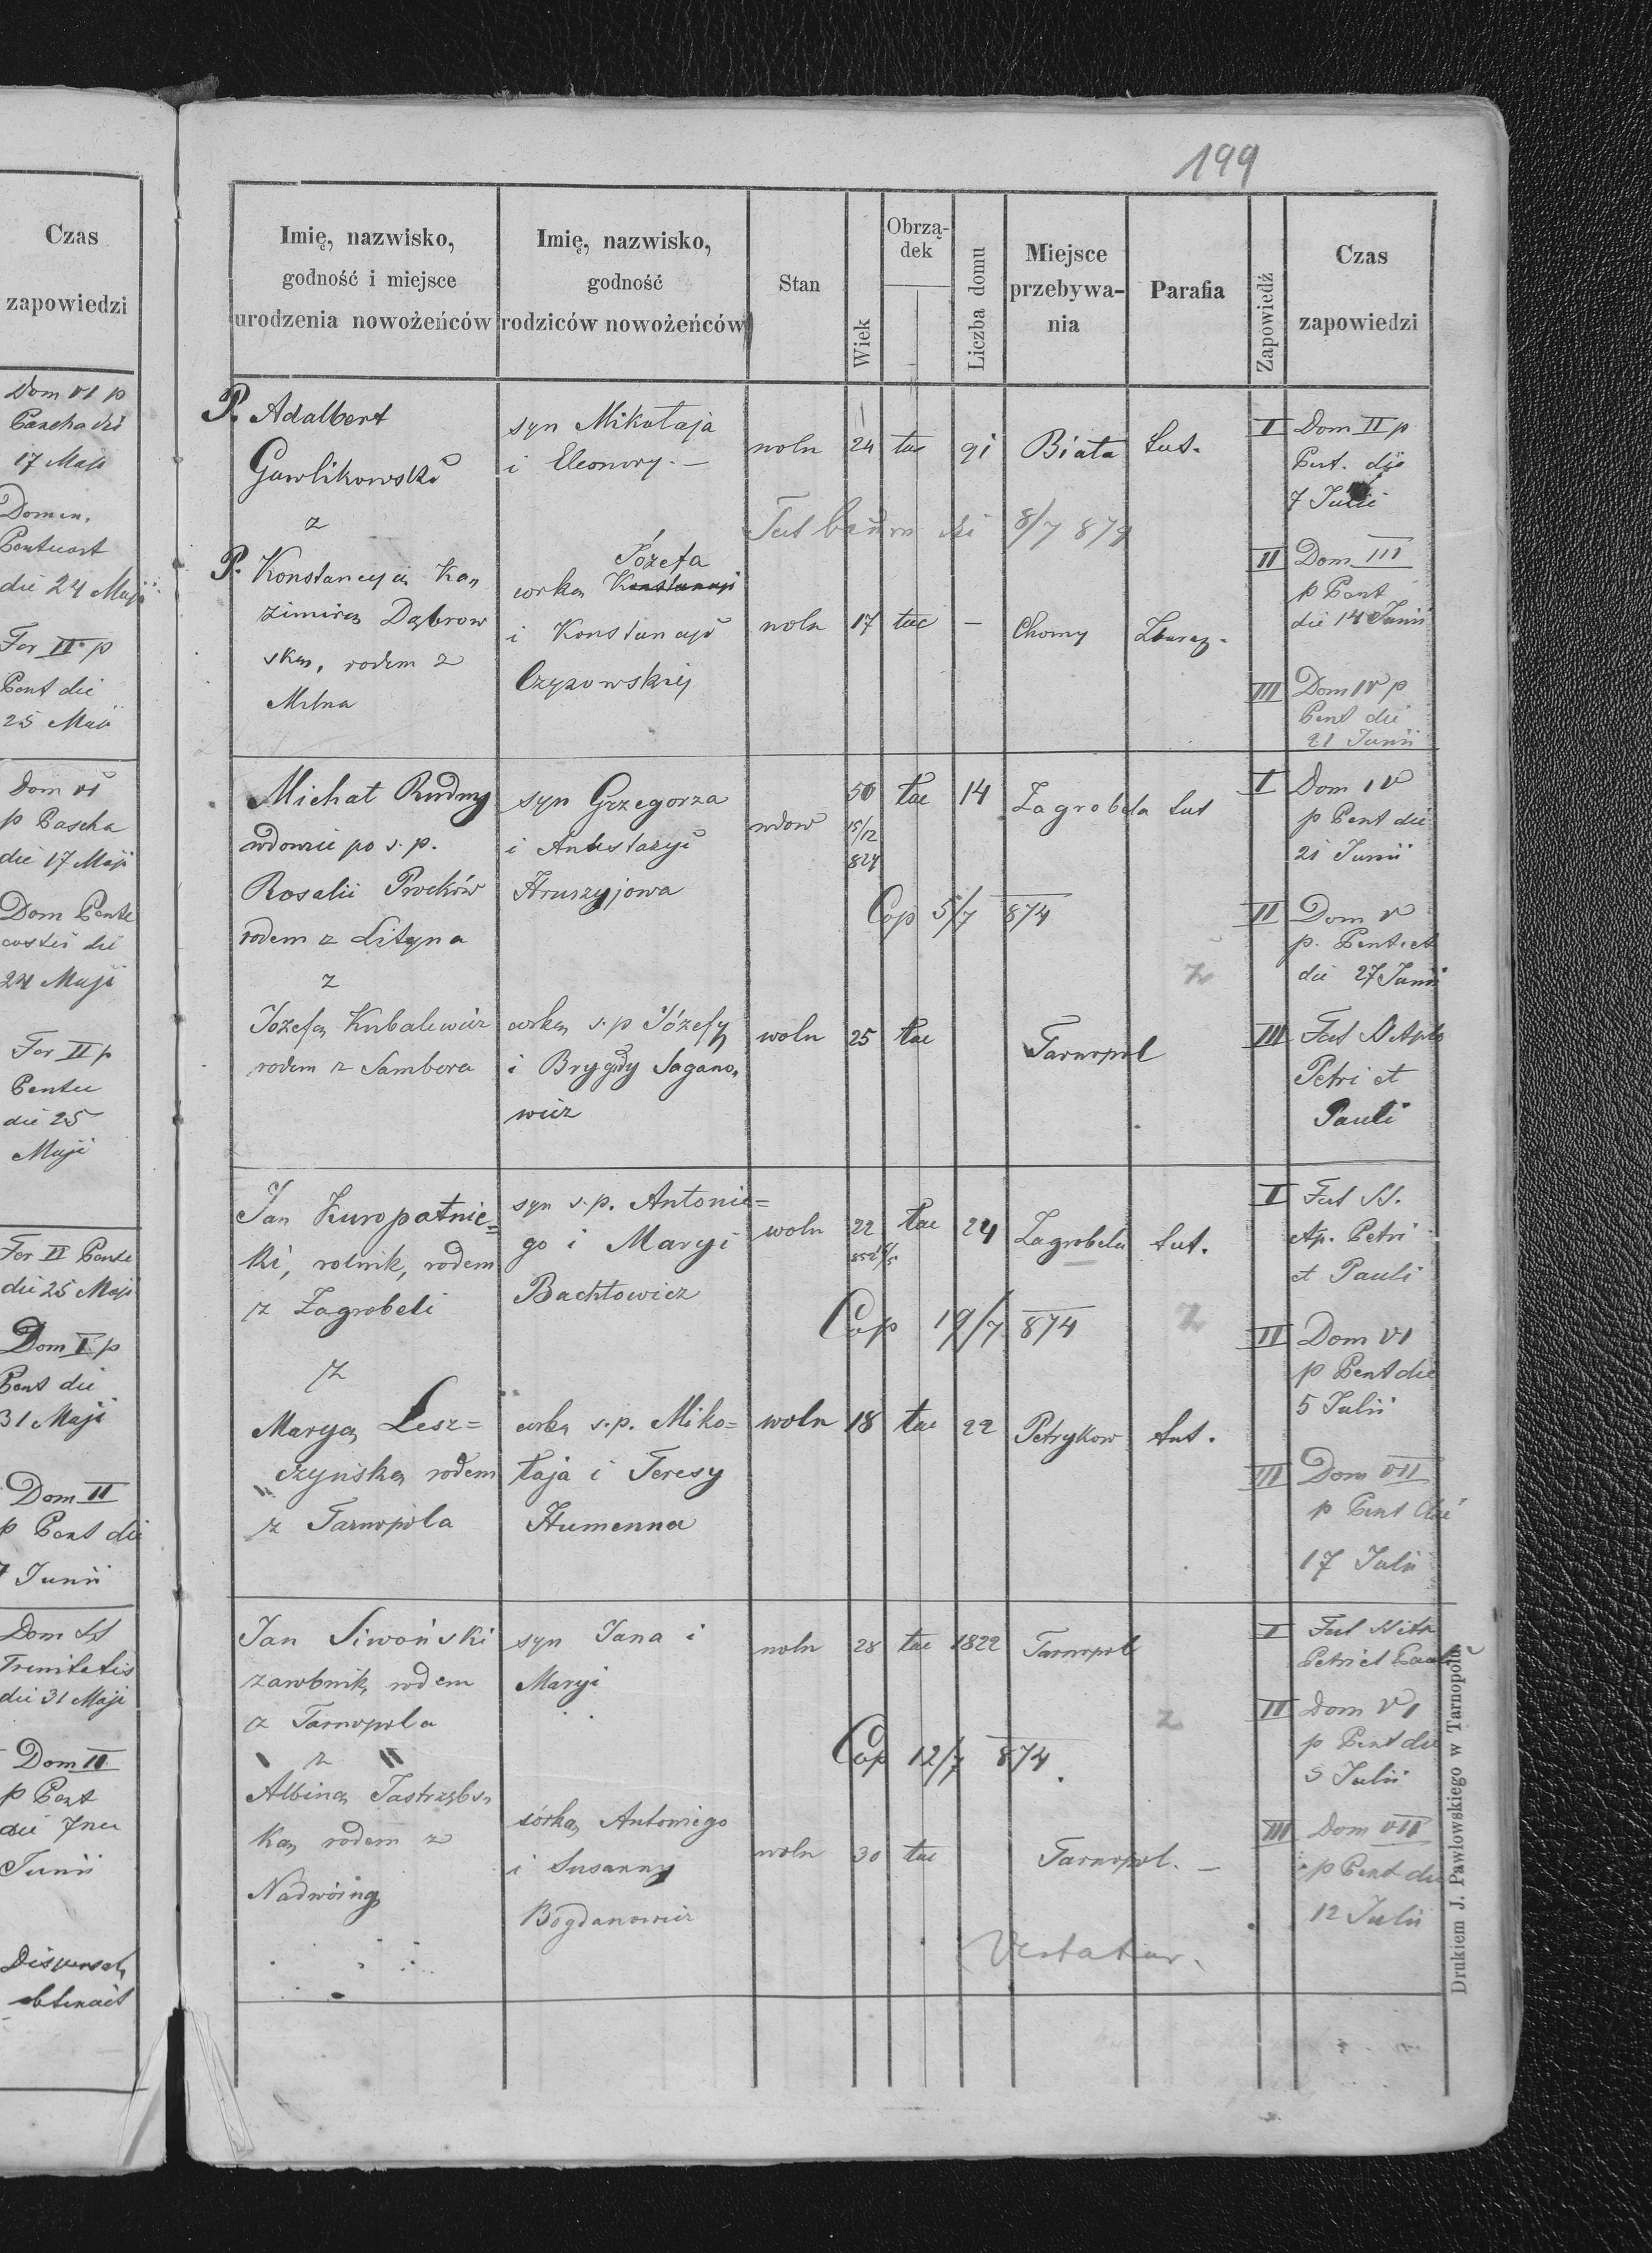 Czas
zapowiedzi
Dom VI p
Pascha die
17 Maji
Domin.
Pentecost
die 24 Maji
Fer II p
Pent die
25 Maji
Dom VI
p Pascha
die 17 Maji
Dom Pente
costes die
24 Maji
Fer II p
Pentec
die 25
Maji
Fer II Pente
die 25 Maji
Dom I p
Pent die
31 Maji
Dom II
p Pent die
7 Junii
Dom SS
Trinitatis
die 31 Maji
Dom II
p Pent
die 7
Junii
199
Imię, nazwisko,
godność i miejsce
urodzenia nowożeńców
Imię, nazwisko,
godność
rodziców nowożeńców
Stan
Wiek
Obrzą-
dek
Liczba domu
Miejsce
przebywa-
nia
Parafia
Zapowiedź
Czas
zapowiedzi
P. Adalbert
Gawlikowski
z
P. Konstancya Ka„
zimira Dąbrow
ska, rodem z
Milna
syn Mikołaja
i Eleonory. —
Józefa
corka Konstancyi
i Konstancyi
Czyżowskiej
woln 24 łac 91 Biała tut.
8/7 879
woln 17 łac — Chomy Zbaraz.
I Dom II p
Pent. die
7 Junii
II Dom III
p Pent
die 14 Junii
III Dom IV p
Pent die
21 Junii
Michał Rudny
wdowiec po s. p.
Rosalii Proćków
rodem z Lityna
z
Jozefa Kubalewicz
rodem z Sambora
syn Grzegorza
i Anestazyi
Hruszyjowa
corka s. p Józefy
i Brygidy Sagano„
wicz
wdow 50 łac 14 Zagrobela tut
15/12
824
Cop 5/7 874
z
woln 25 łac Tarnopol
I Dom IV
p Pent die
21 Junii
II Dom V
p. Pent.
die 27 Junii
III Fest
Petri et
Pauli
Jan Kuropatnic=
ki, rolnik, rodem
z Zagrobeli
z
Marya Lesz=
czyńska rodem
z Tarnopola
syn s. p. Antonie=
go i Maryi
Bachtowicz
corka s. p. Miko=
łaja i Teresy
Humenna
woln 22 łac 24 Zagrobela tut.
Cop 19/7 874
z
woln 18 łac 22 Petrykow tut.
I Fest SS.
Ap. Petri
et Pauli
II Dom VI
p Pent die
5 Julii
III Dom VII
p Pent die
17 Julii
Jan Siwoński
zarobnik, rodem
z Tarnopola
z
Albina Jastrzębs„
ka, rodem z
Nadwórny
syn Jana i
Maryi
córka Antoniego
i Susanny
Bogdanowicz
woln 28 łac 1822 Tarnopol
z
Cop 12/7 874
woln 30 łac Tarnopol. —
I Fest
Petri et Pauli
II Dom VI
p Pent die
5 Julii
III Dom VII
p Pent die
12 Julii
Drukiem J. Pawłowskiego w Tarnopolu.